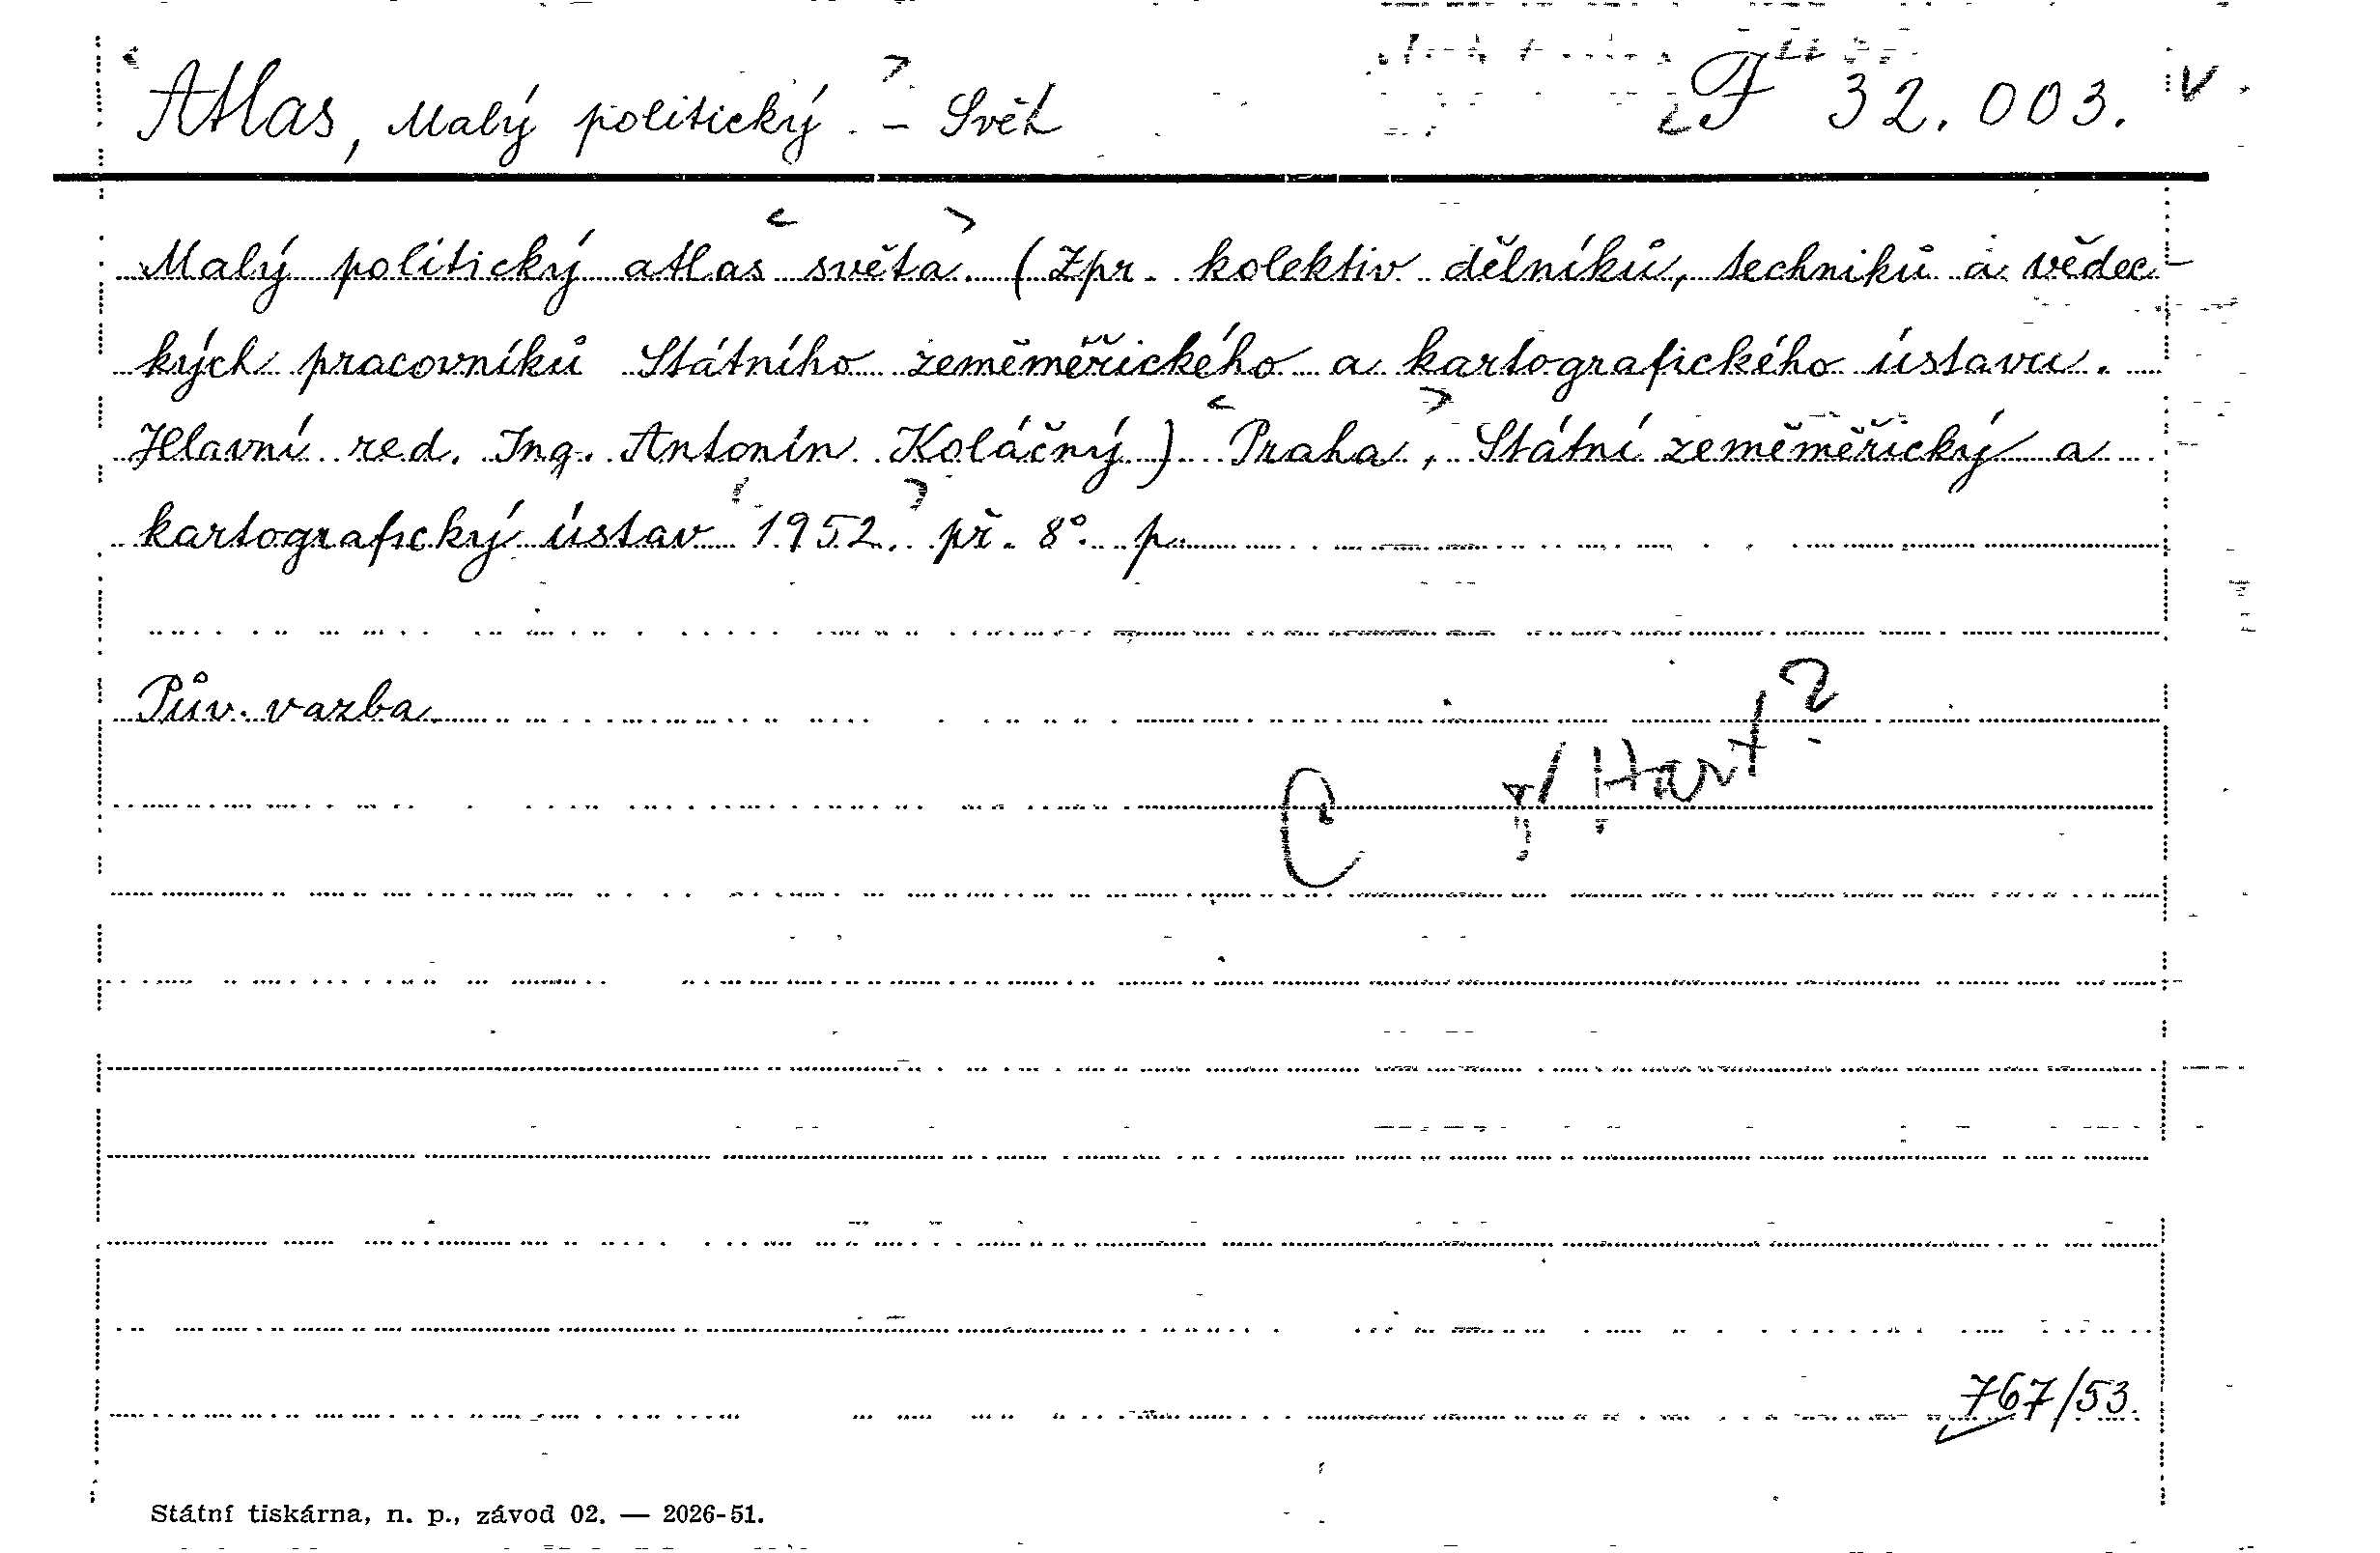 Atlas, Malý politický. – Svět F 32.003. V
Malý politický atlas světa. (Zpr. kolektiv dělníků, techniků a vědec-
kých pracovníků Státního zeměměřického a kartografického ústavu.
Hlavní red. Ing. Antonín Koláčný) Praha, Státní zeměměřický a
kartografický ústav 1952. př. 8°. p.
Pův. vazba
Hart?
C
767/53.
Státní tiskárna, n. p., závod 02. — 2026-51.